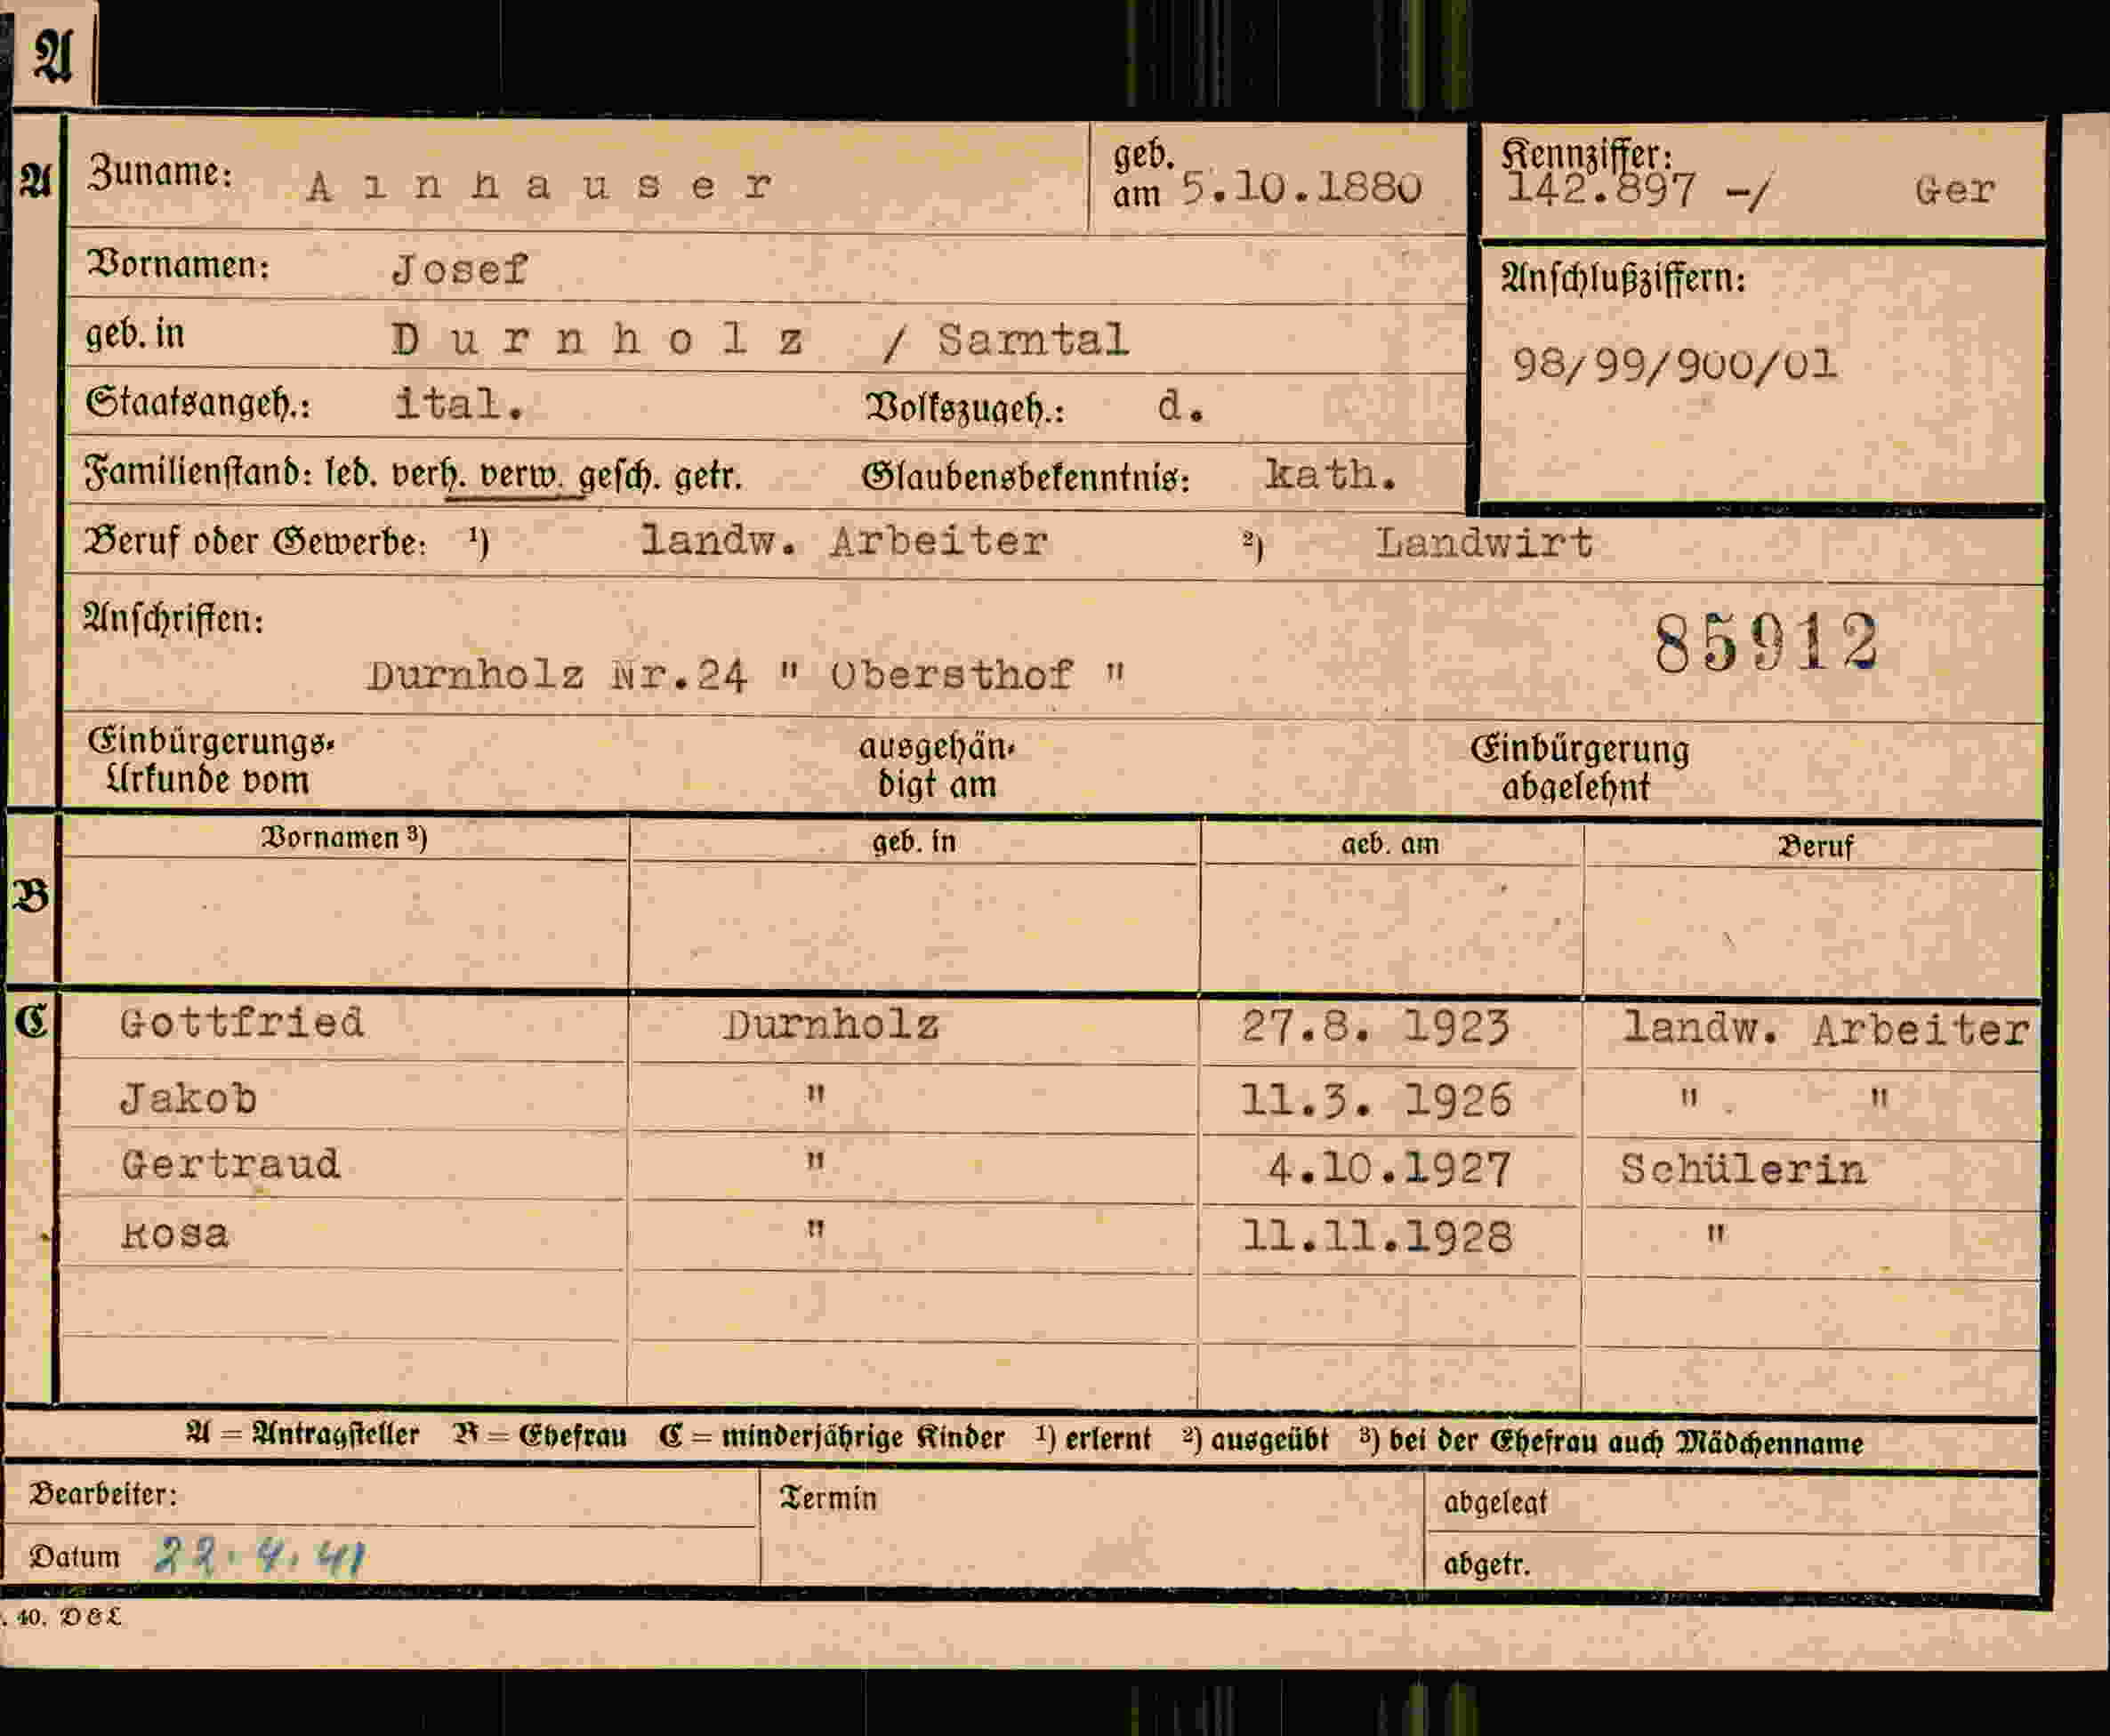 A
A
Zuname: Ainhauser geb. am 5.10.1880 Kennziffer: 142.897 -/ Ger
Vornamen: Josef
Anschlußziffern:
geb. in Durnholz / Sarntal
98/99/900/01
Staatsangeh.: ital. Volkszugeh.: d.
Familienstand: led. verh. verw. gesch. getr. Glaubensbekenntnis: kath.
Beruf oder Gewerbe: 1) landw. Arbeiter 2) Landwirt
Anschriften:
85912
Durnholz Nr.24 " Obersthof "
Einbürgerungs- ausgehän- Einbürgerung
Urkunde vom digt am abgelehnt
Vornamen 3) geb. in geb. am Beruf
B
C Gottfried Durnholz 27.8. 1923 landw. Arbeiter
Jakob " 11.3. 1926 " "
Gertraud " 4.10.1927 Schülerin
Rosa " 11.11.1928 "
A = Antragsteller B = Ehefrau C = minderjährige Kinder 1) erlernt 2) ausgeübt 3) bei der Ehefrau auch Mädchenname
Bearbeiter: Termin abgelegt
Datum 22.4.41 abgetr.
. 40. D & L